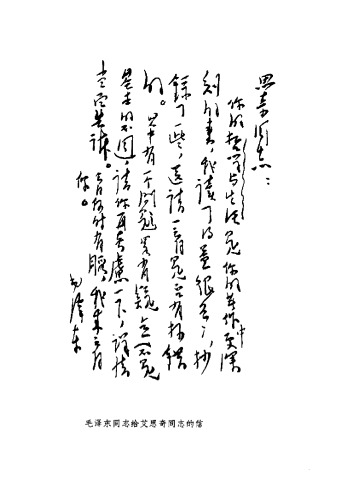 思奇同志：
你的哲学与生活是你的著作中更深
刻的書，我讀了得益很多，抄
錄了一些，送請一看是否有抄錯
的。其中有一个問題略有疑点（不是
基本的不同），請你再考慮一下，詳情
当面告訴。今日何时有暇，我来看
你。
毛澤东
毛泽东同志给艾思奇同志的信